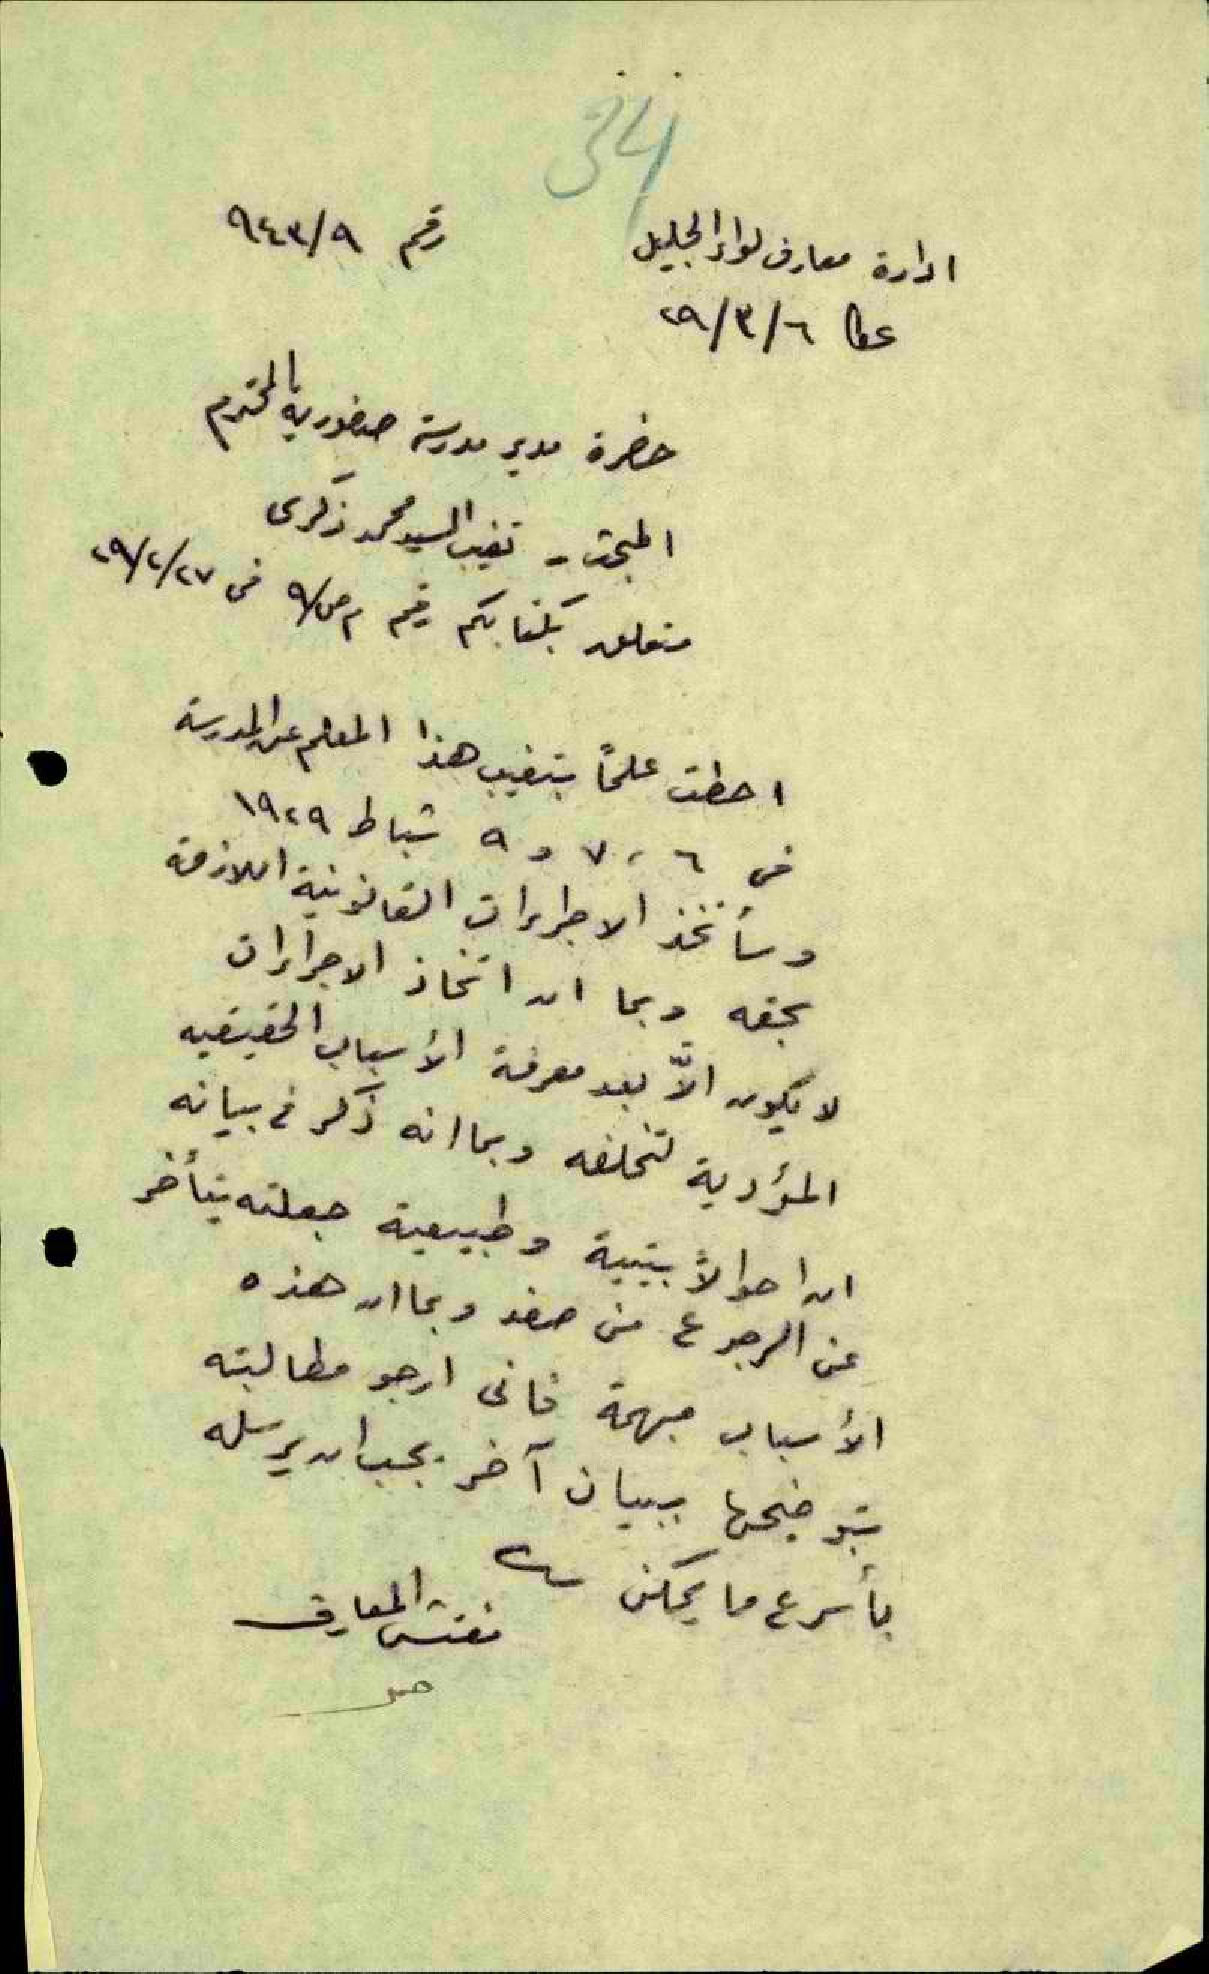 34
ادارة معارف لواء الجليل رقم ٩٤٣/٩
عكا ٢٩/٣/٦
حضرة مدير مدرسة صفورية المحترم
المبحث - تغيب السيد محمد زكري
متعلق بكتابكم رقم م ص/٩ في ٢٩/٢/٢٧
احطت علمًا بتغيب هذا المعلم عن المدرسة
في ٦، ٧ و ٩ شباط ١٩٢٩
وسأتخذ الاجراءات القانونية اللازمة
بحقه وبما ان اتخاذ الاجراءات
لا يكون الاّ بعد معرفة الأسباب الحقيقيه
المؤدية لتخلفه وبما انه ذكر في بيانه
ان احوالاً بيتية وطبيعية جعلته يتأخر
عن الرجوع من صفد وبما ان هذه
الأسباب مبهمة فاني ارجو مطالبته
بتوضيحها ببيان آخر يجب ان يرسله
بأسرع ما يمكن
مفتش المعارف